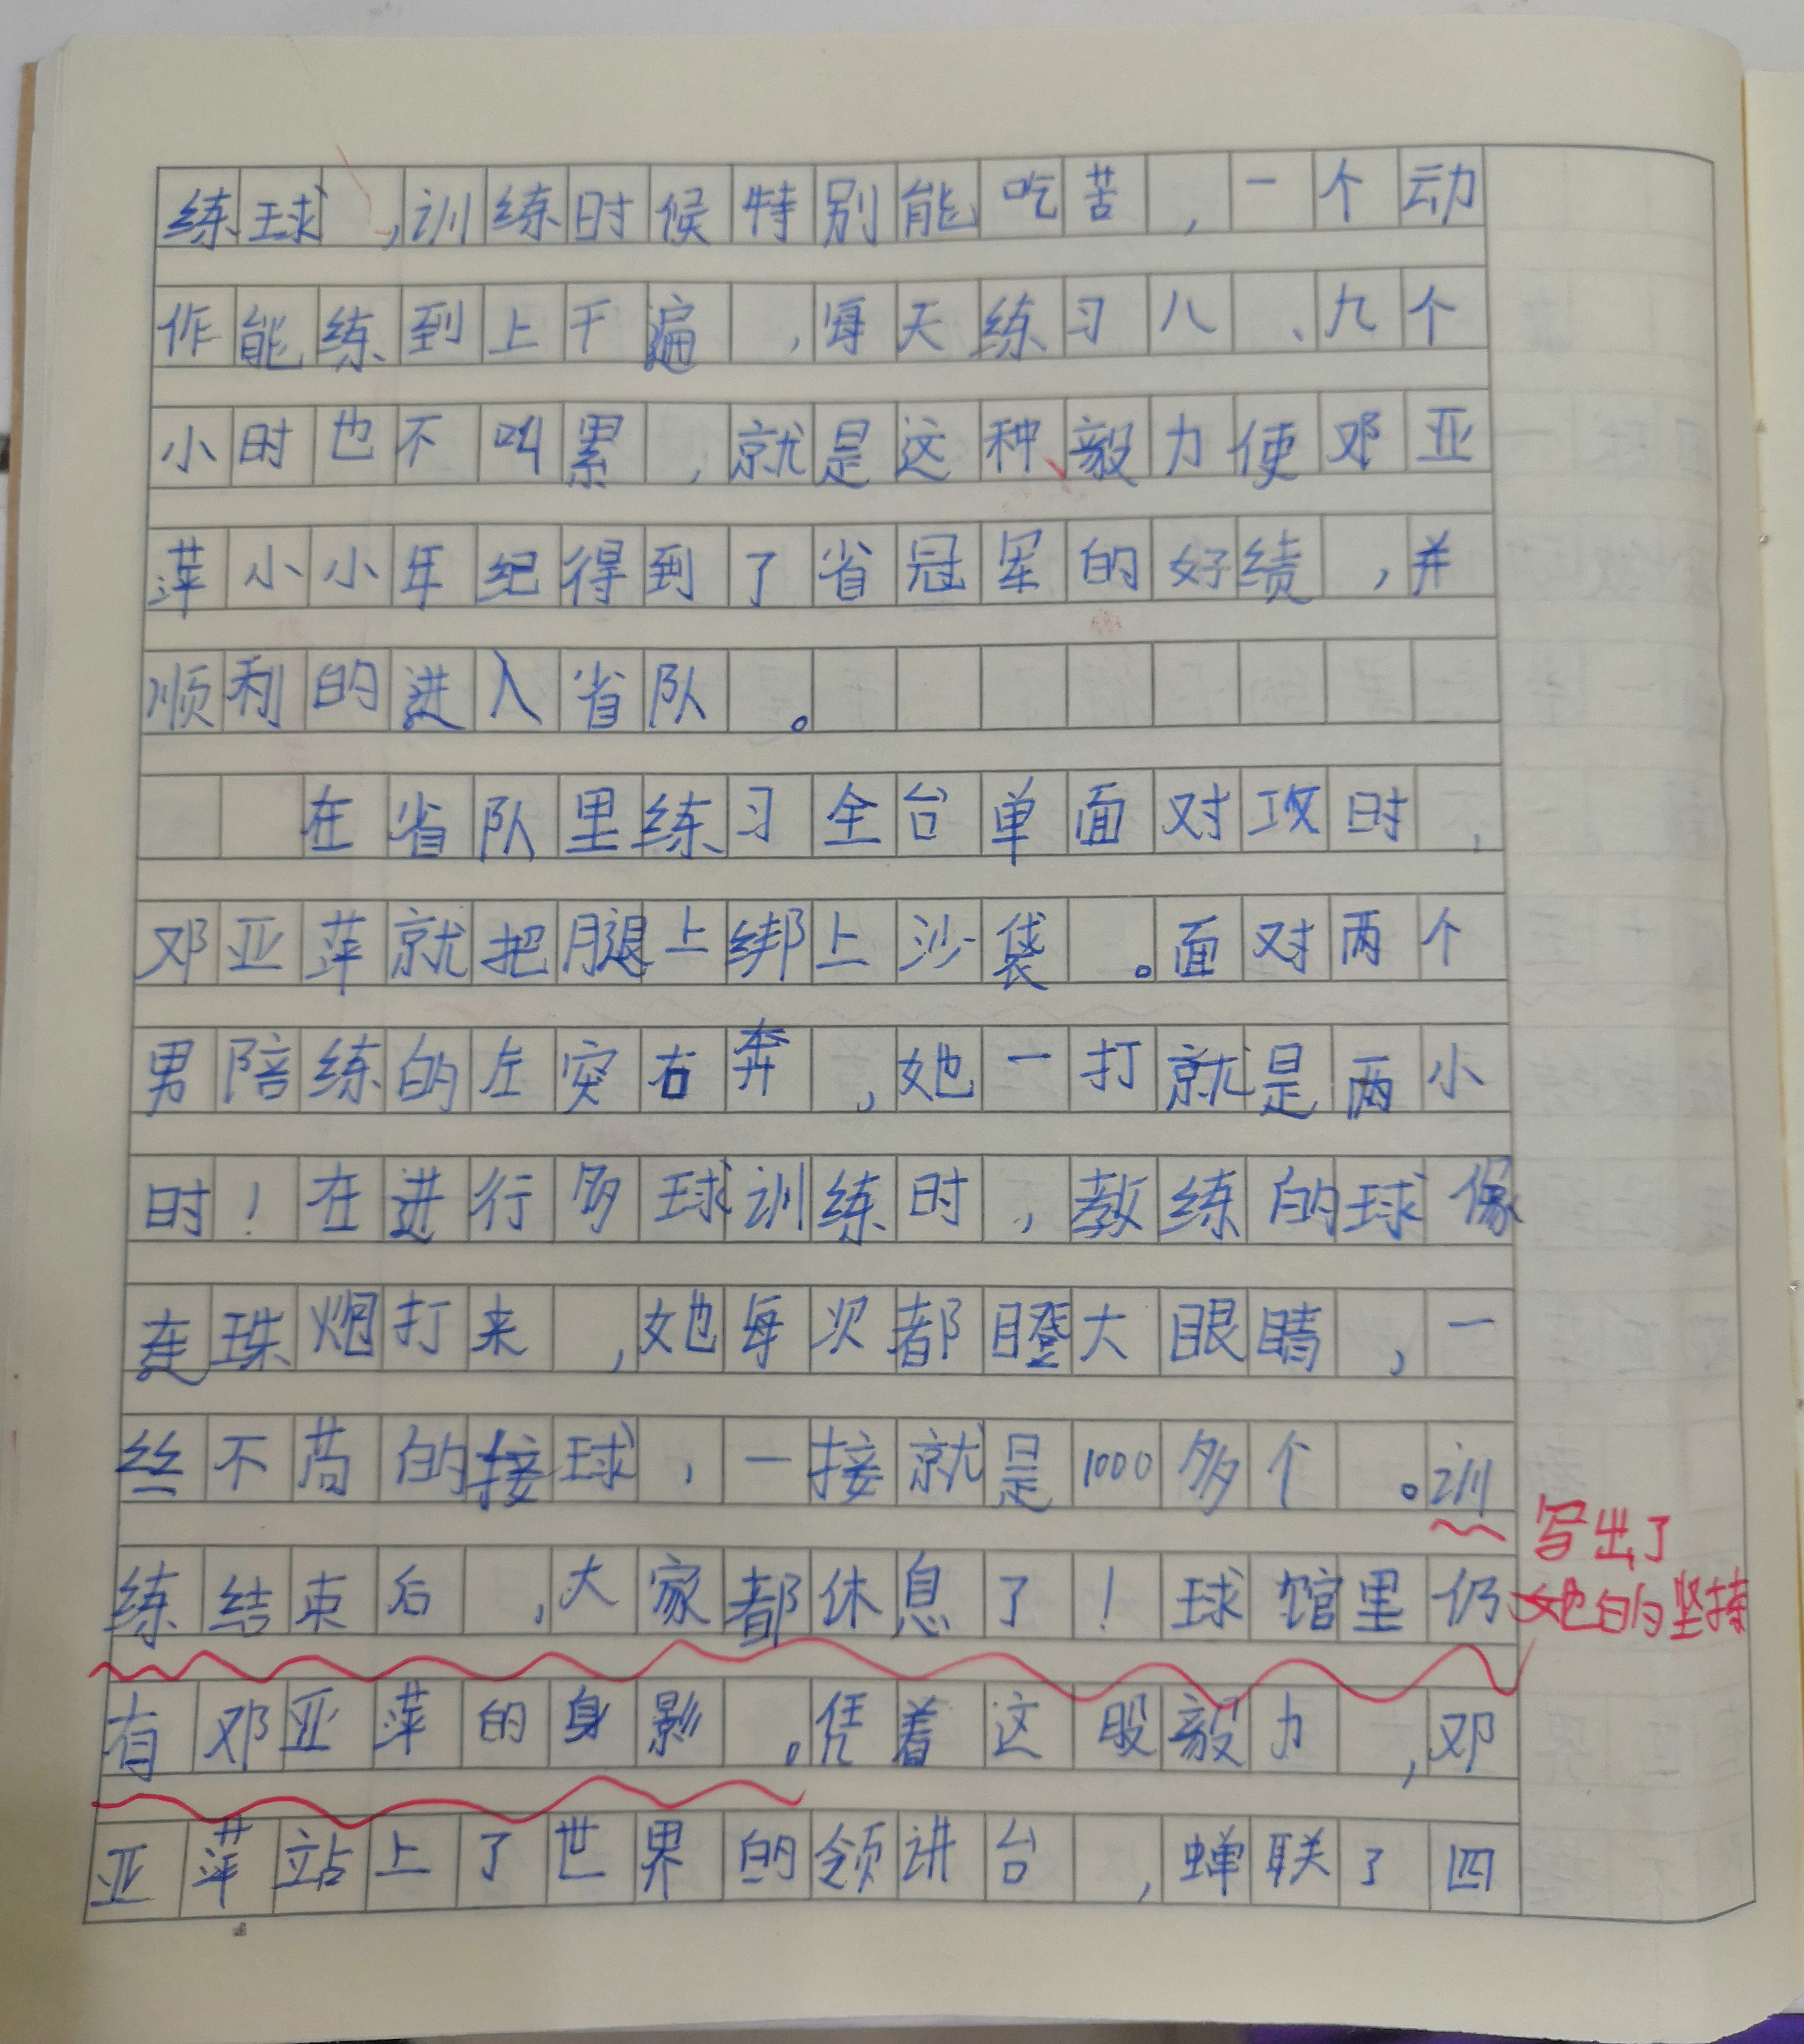 练球,训练时候特别能吃苦,一个动
作能练到上千遍,每天练习八、九个
小时也不叫累,就是这种毅力使邓亚
萍小小年纪得到了省冠军的好绩,并
顺利的进入省队。
在省队里练习全台单面对攻时,
邓亚萍就把腿上绑上沙袋。面对两个
男陪练的左突右奔,她一打就是两小
时!在进行多球训练时,教练的球像
连珠炮打来,她每次都瞪大眼睛,一
丝不苟的接球,一接就是1000多个。训
练结束后,大家都休息了!球馆里仍
有邓亚萍的身影。凭着这股毅力,邓
亚萍站上了世界的领讲台,蝉联了四
写出了
她的坚持